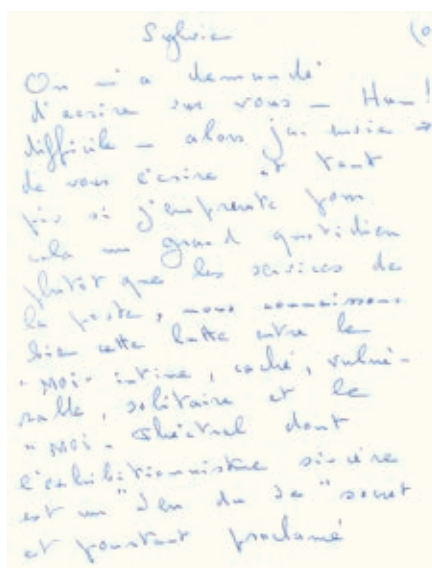 Sylvie (o
On m'a demandé
d'écrire sur vous - Hum!
difficile - alors j'ai
de vous écrire et tant
pis si j'emprunte pour
cela un grand quotidien
plutôt que les services de
la poste, nous connaissons
bien cette lutte entre le
"MOI" intime, caché, vulné-
rable, solitaire et le
"MOI" théâtral dont
l'exhibitionnisme sincère
est un "Jeu du Je" secret
et pourtant proclamé